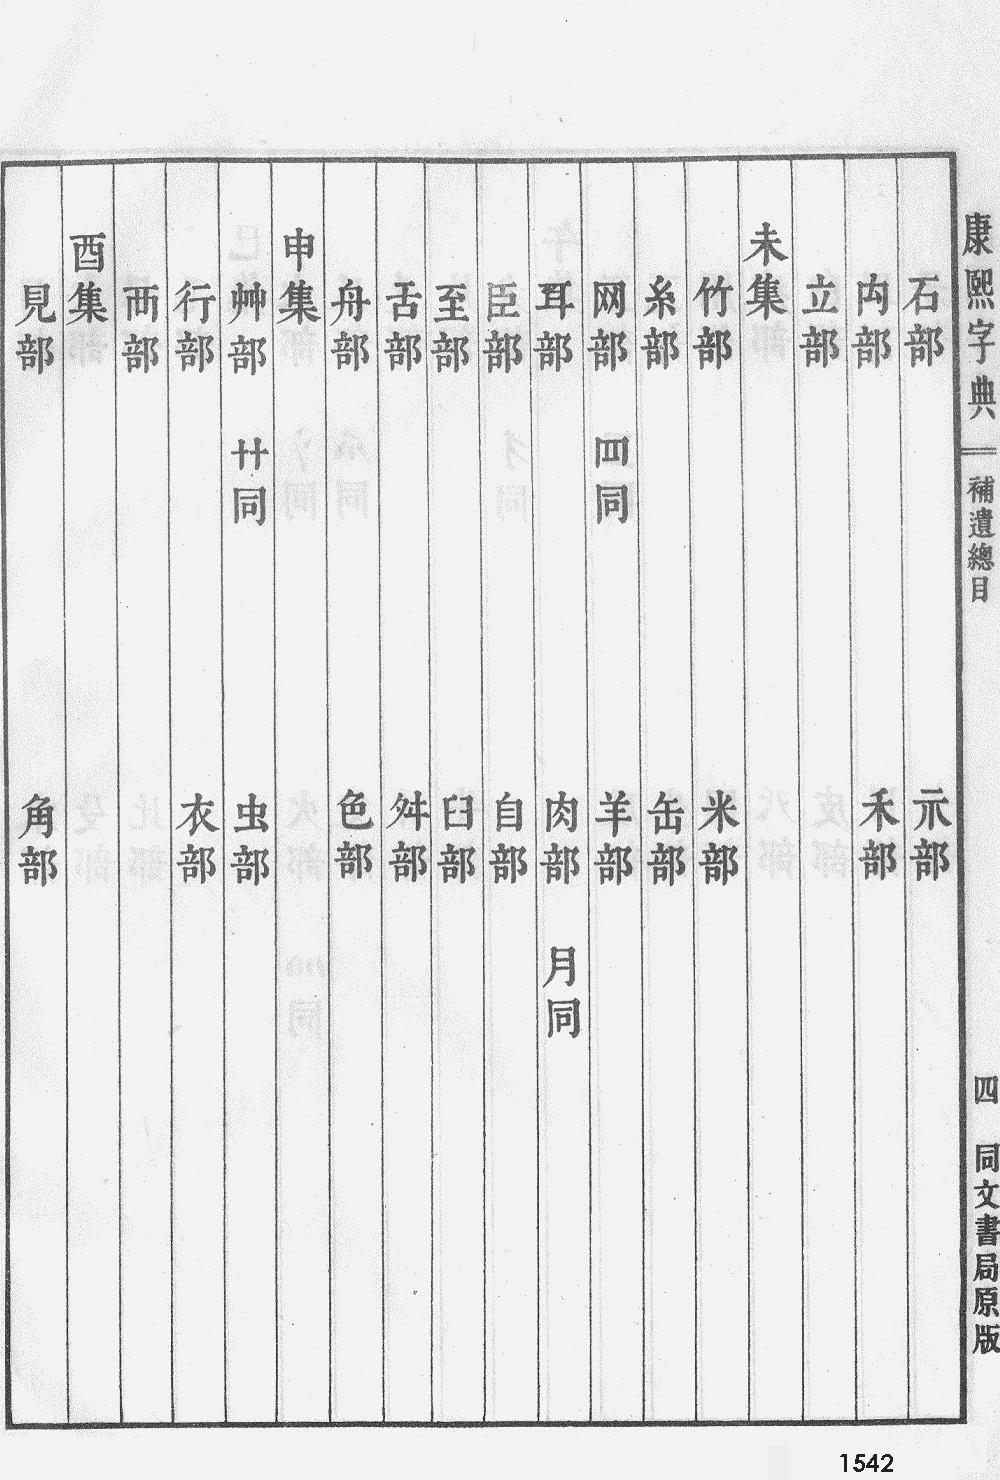 康熙字典
補遺總目
四
同文書局原版
石部 示部
禸部 禾部
立部
未集
竹部 米部
糸部 缶部
网部 罒同 羊部
耳部 肉部 月同
臣部 自部
至部 臼部
舌部 舛部
舟部 色部
申集
艸部 卄同 虫部
行部 衣部
襾部
酉集
見部 角部
1542